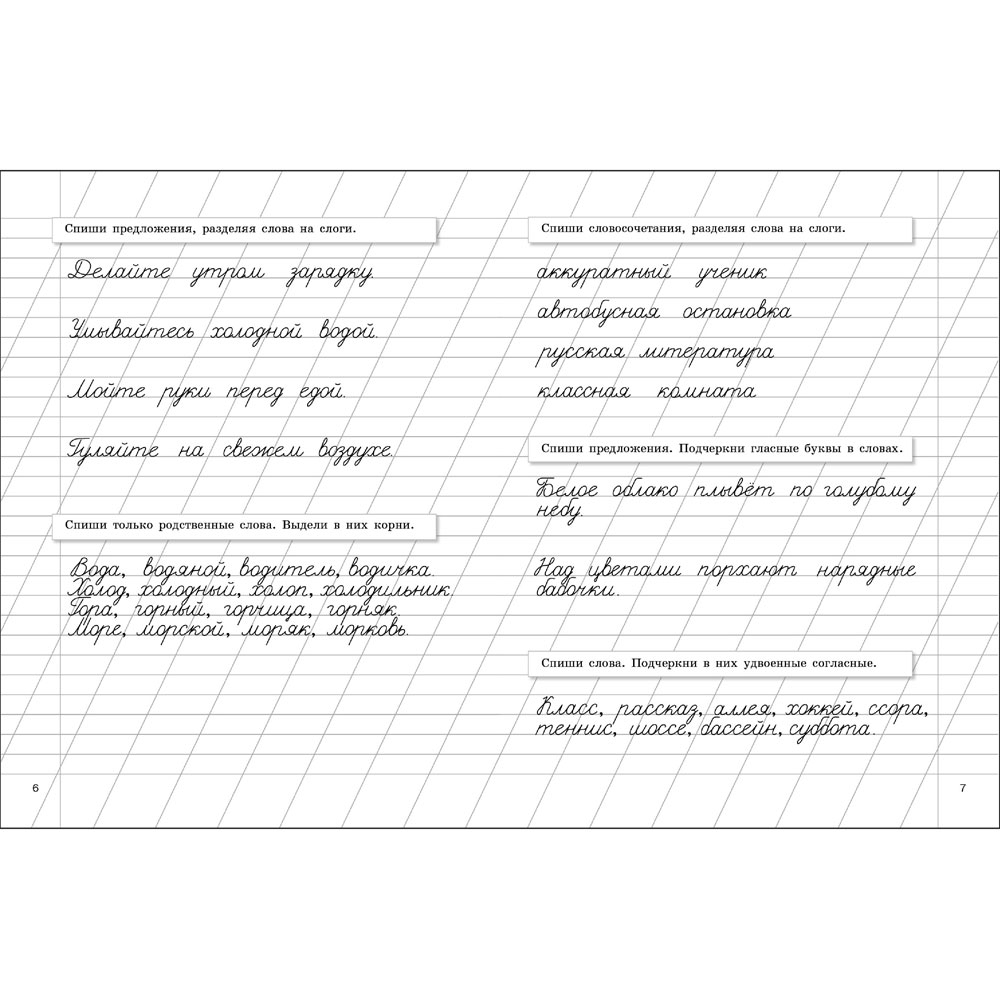 Спиши предложения, разделяя слова на слоги.
Делайте утром зарядку.
Умывайтесь холодной водой.
Мойте руки перед едой.
Гуляйте на свежем воздухе.
Спиши только родственные слова. Выдели в них корни.
Вода, водяной, водитель, водичка.
Холод, холодный, холоп, холодильник.
Гора, горный, горчица, горняк.
Море, морской, моряк, морковь.
6
Спиши словосочетания, разделяя слова на слоги.
аккуратный ученик
автобусная остановка
русская литература
классная комната
Спиши предложения. Подчеркни гласные буквы в словах.
Белое облако плывёт по голубому
небу.
Над цветами порхают нарядные
бабочки.
Спиши слова. Подчеркни в них удвоенные согласные.
Класс, рассказ, аллея, хоккей, ссора,
теннис, шоссе, бассейн, суббота.
7